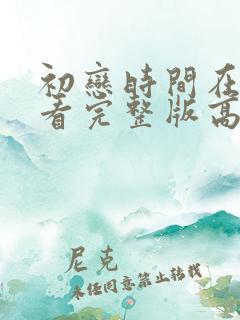 初戀時間在
看完整版高
尼克
未经同意禁止转载